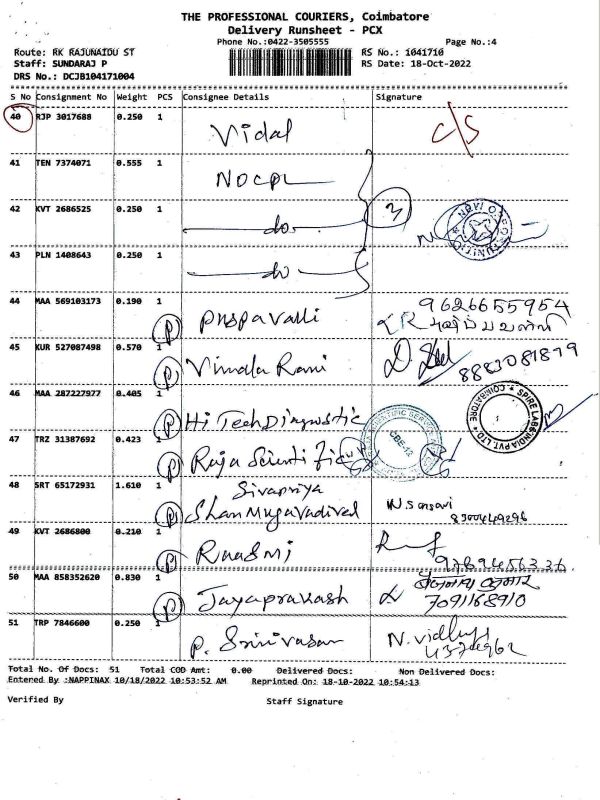 THE PROFESSIONAL COURIERS, Coimbatore
Delivery Runsheet - PCX
Phone No.:0422-3505555 Page No.:4
Route: RK RAJUNAIDU ST RS No.: 1041710
Staff: SUNDARAJ P RS Date: 18-Oct-2022
DRS No.: DCJB104171004
S No Consignment No Weight PCS Consignee Details Signature
40 RJP 3017688 0.250 1 Vidal C/S
41 TEN 7374071 0.555 1 NOCPL
42 KVT 2686525 0.250 1 do 3
43 PLN 1408643 0.250 1 do
44 MAA 569103173 0.190 1 P Puspavalli 9626655954
45 KUR 527087498 0.570 1 P Vimala Rani 8883081899
46 MAA 287227977 0.405 1 P Hi Tech Diagnostic
SPIRE LABS INDIA PVT. LTD COIMBATORE
47 TRZ 31387692 0.423 1 P Raja Scientific
SCIENTIFIC SERVICE CBE-12
48 SRT 65172931 1.610 1 P Sivapriya
Shanmugavadivel
8300449296
49 KVT 2686800 0.210 1 P
50 MAA 858352620 0.830 1 P Jayaprakash 7091168910
51 TRP 7846600 0.250 1 P. Srinivasan N. Vidhya
Total No. Of Docs: 51 Total COD Amt: 0.00 Delivered Docs: Non Delivered Docs:
Entered By :NAPPINAX 10/18/2022 10:53:52 AM Reprinted On: 18-10-2022 10:54:13
Verified By Staff Signature